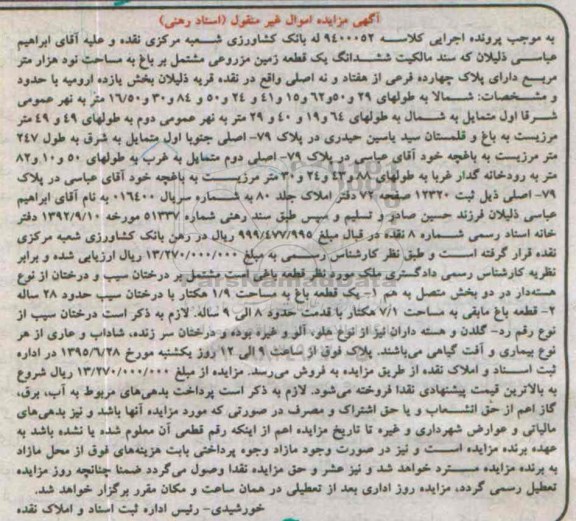 آگهی مزایده اموال غیر منقول (اسناد رهنی)
به موجب پرونده اجرایی کلاسه ۹۴۰۰۰۵۲ له بانک کشاورزی شعبه مرکزی نقده و علیه آقای ابراهیم
عباسی ذلیلان که سند مالکیت ششدانگ یک قطعه زمین مزروعی مشتمل بر باغ به مساحت نود هزار متر
مربع دارای پلاک چهارده فرعی از هفتاد و نه اصلی واقع در نقده قریه ذلیلان بخش یازده ارومیه با حدود
و مشخصات: شمالا به طولهای ۲۹ و ۵۰و۶۲ و۱۵ و۴۱ و ۲۴ و ۵۰ و ۸۴ و ۳۰ و۱۶/۵۰ متر به نهر عمومی
شرقا اول متمایل به شمال به طولهای ۶۴ و۱۹ و ۴۰ و ۲۹ متر به نهر عمومی دوم به طولهای ۴۹ و ۴۹ متر
مرزیست به باغ و قلمستان سید یاسین حیدری در پلاک ۷۹- اصلی جنوبا اول متمایل به شرق به طول ۲۴۷
متر مرزیست به باغچه خود آقای عباسی در پلاک ۷۹- اصلی دوم متمایل به غرب به طولهای ۵۰ و۱۰ و۸۲
متر به رودخانه گدار غربا به طولهای ۸۸ و۴۳ و۲۴ و۳۰ متر مرزیست به باغچه خود آقای عباسی در پلاک
۷۹- اصلی ذیل ثبت ۱۲۳۲۰ صفحه ۷۲ دفتر املاک جلد ۸۰ به شماره سریال ۰۱۶۴۰۰ به نام آقای ابراهیم
عباسی ذلیلان فرزند حسین صادر و تسلیم و سپس طبق سند رهنی شماره ۵۱۳۳۷ مورخه ۱۳۹۲/۹/۱۰ دفتر
خانه اسناد رسمی شماره ۸ نقده در قبال مبلغ ۹۹۹/۴۷۷/۹۹۵ ریال در رهن بانک کشاورزی شعبه مرکزی
نقده قرار گرفته است و طبق نظر کارشناس رسمی به مبلغ ۱۳/۲۷۰/۰۰۰/۰۰۰ ریال ارزیابی شده و برابر
نظریه کارشناس رسمی دادگستری ملک مورد نظر قطعه باغی است مشتمل بر درختان سیب و درختان از نوع
هسته‌دار در دو بخش متصل به هم ۱- یک قطعه باغ به مساحت ۱/۹ هکتار با درختان سیب حدود ۲۸ ساله
۲- قطعه باغ مابقی به مساحت ۷/۱ هکتار با قدمت حدود ۸ الی ۹ ساله. لازم به ذکر است درختان سیب از
نوع رقم رد- گلدن و هسته داران نیز از نوع هلو، آلو و غیره بوده و درختان سر زنده، شاداب و عاری از هر
نوع بیماری و آفت گیاهی می‌باشند. پلاک فوق از ساعت ۹ الی ۱۲ روز یکشنبه مورخ ۱۳۹۵/۶/۲۸ در اداره
ثبت اسناد و املاک نقده از طریق مزایده به فروش می‌رسد. مزایده از مبلغ ۱۳/۲۷۰/۰۰۰/۰۰۰ ریال شروع
به بالاترین قیمت پیشنهادی نقدا فروخته می‌شود. لازم به ذکر است پرداخت بدهی‌های مربوط به آب، برق،
گاز اعم از حق انشعاب و یا حق اشتراک و مصرف در صورتی که مورد مزایده آنها باشد و نیز بدهی‌های
مالیاتی و عوارض شهرداری و غیره تا تاریخ مزایده اعم از اینکه رقم قطعی آن معلوم شده یا نشده باشد به
عهده برنده مزایده است و نیز در صورت وجود مازاد وجوه پرداختی بابت هزینه‌های فوق از محل مازاد
به برنده مزایده مسترد خواهد شد و نیز عشر و حق مزایده نقدا وصول می‌گردد ضمنا چنانچه روز مزایده
تعطیل رسمی گردد، مزایده روز اداری بعد از تعطیلی در همان ساعت و مکان مقرر برگزار خواهد شد.
خورشیدی- رئیس اداره ثبت اسناد و املاک نقده